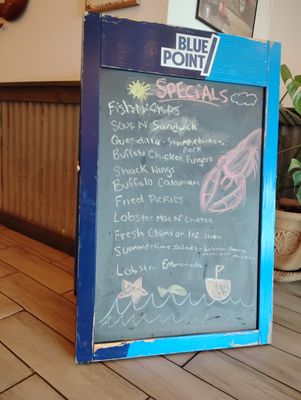 BLUE
POINT
SPECIALS
Fish N' Chips
Soup N' Sandwich
Quesadilla - Shrimp, chicken,
pork
Buffalo Chicken Fingers
Shack Wings
Buffalo Calamari
Fried Pickles
Lobster Mac N' Cheese
Fresh Clams on 1/2 shell
Summertime Salads -
Lobster Empanada